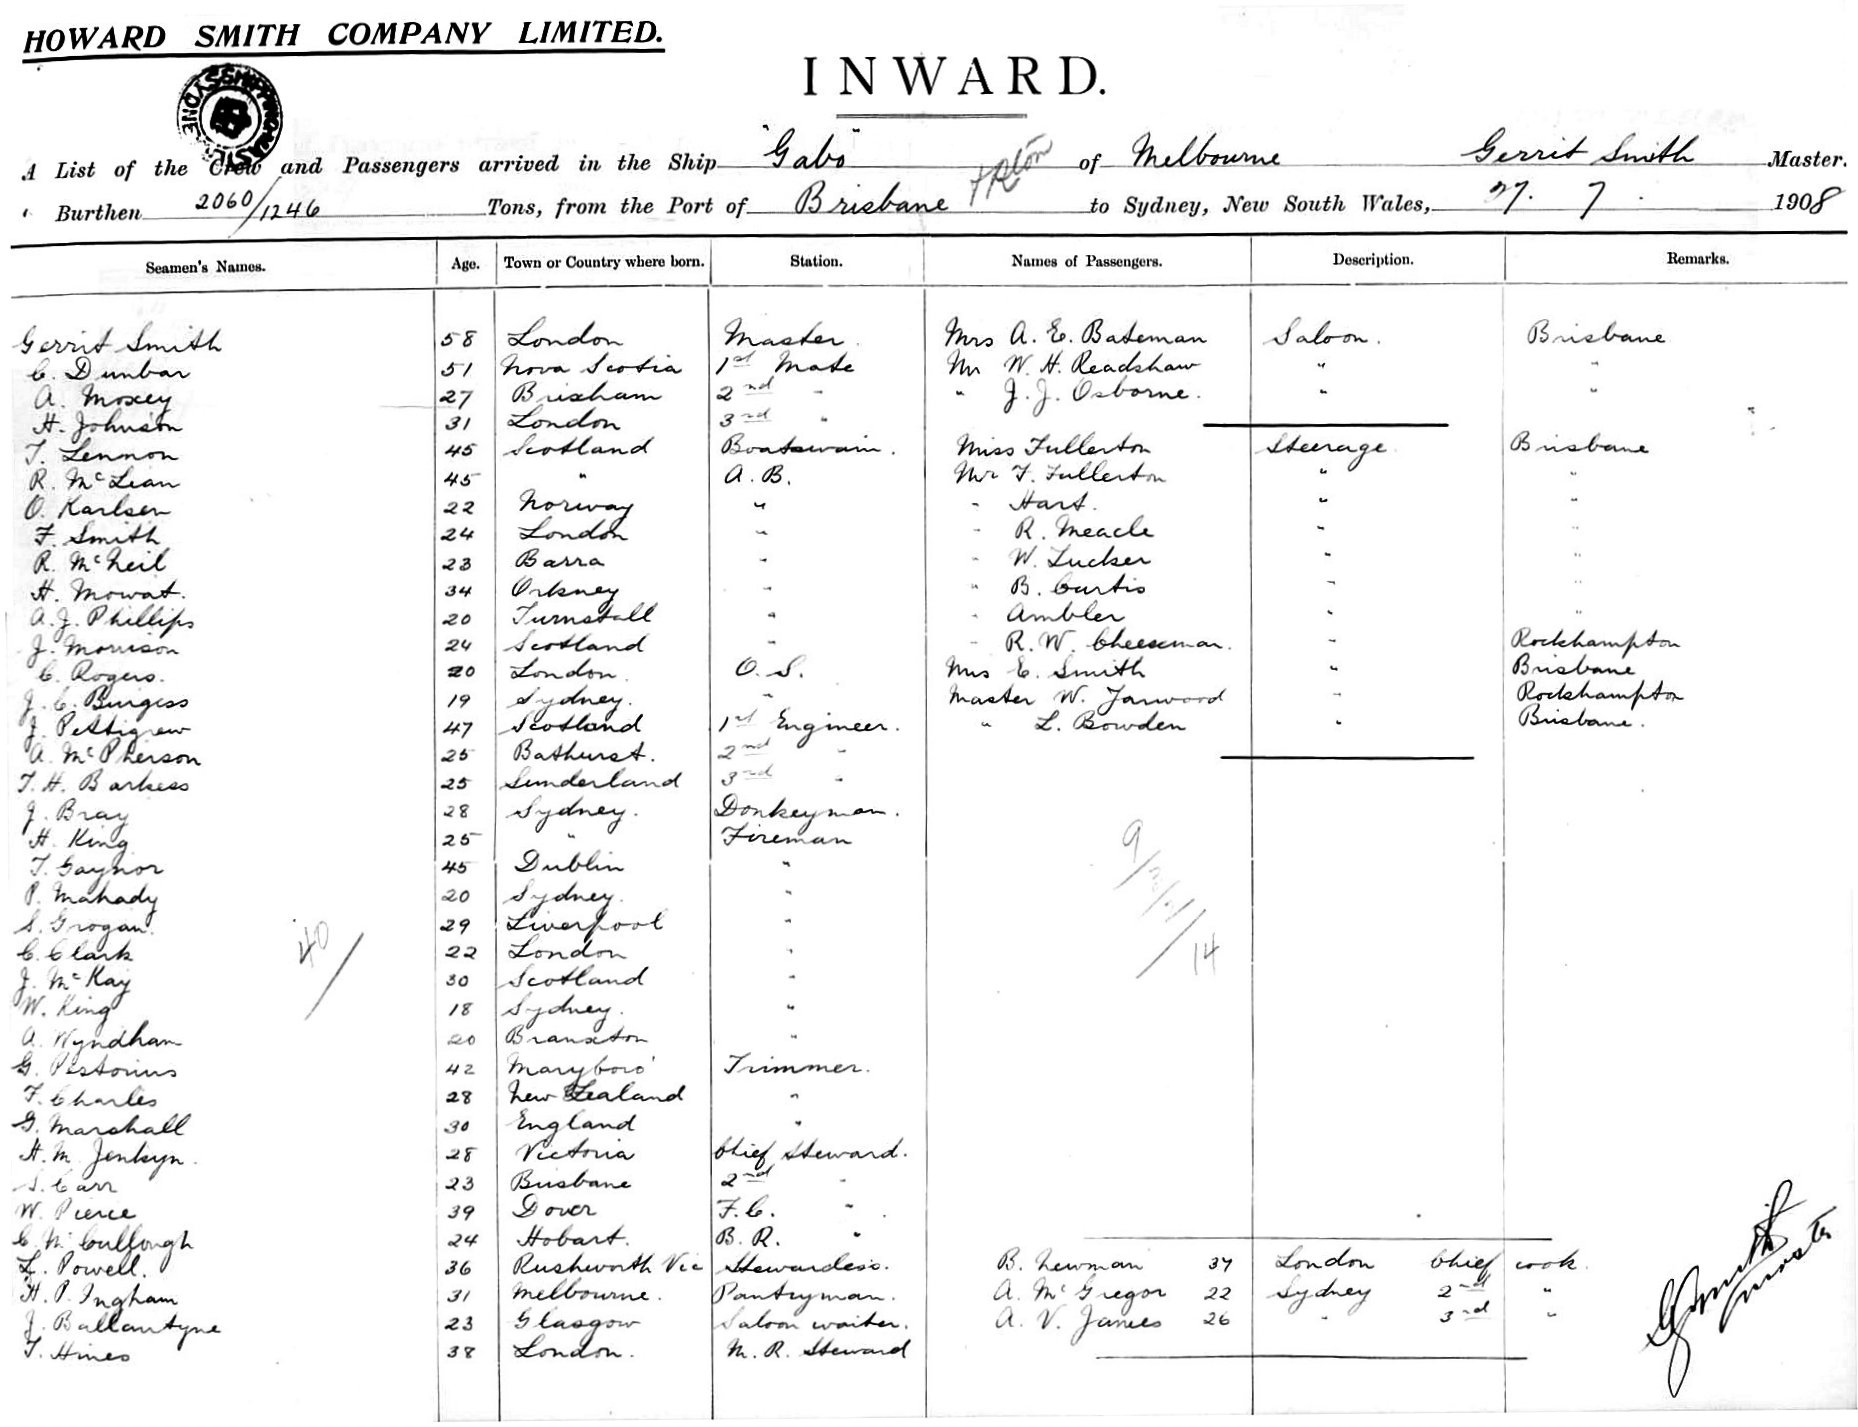 HOWARD SMITH COMPANY LIMITED.
INWARD.
A List of the Crew and Passengers arrived in the Ship "Gabo" of Melbourne Gerrit Smith Master.
Burthen 2060/1246 Tons, from the Port of Brisbane to Sydney, New South Wales, 27. 7. 1908
Seamen's Names. Age. Town or Country where born. Station. Names of Passengers. Description. Remarks.
Gerrit Smith 58 London Master. Mrs A. E. Bateman Saloon. Brisbane
C. Dunbar 51 Nova Scotia 1st Mate Mr W. H. Readshaw " "
A. Moxey 27 Brixham 2nd " " J. J. Osborne. " "
H. Johnson 31 London 3rd "
T. Lennon 45 Scotland Boatswain. Miss Fullerton Steerage Brisbane
R. McLean 45 " A. B. Mr T. Fullerton " "
O. Karlsen 22 Norway " " Hart. " "
F. Smith 24 London " " R. Meacle " "
R. McNeil 23 Barra " W. Tucker " "
H. Mowat. 34 Orkney " " B. Curtis " "
A. J. Phillips 20 Turnstall " " Ambler " "
J. Morrison 24 Scotland " " R. W. Cheesman. " Rockhampton
C. Rogers. 20 London. O. S. Mrs E. Smith " Brisbane
J. C. Burgess 19 Sydney. " Master W. Jarwood " Rockhampton
J. Pettigrew 47 Scotland 1st Engineer. " L. Bowden " Brisbane.
A. McPherson 25 Bathurst. 2nd "
T. H. Barkess 25 Sunderland 3rd "
J. Bray 28 Sydney. Donkeyman.
H. King 25 " Fireman
T. Gaynor 45 Dublin "
P. Mahady 20 Sydney. "
S. Grogan. 29 Liverpool "
C. Clark 22 London "
J. McKay 30 Scotland "
W. King 18 Sydney. "
A. Wyndham 20 Branxton "
G. Pistorius 42 Maryboro' Trimmer.
F. Charles 28 New Zealand "
G. Marshall 30 England "
H. M. Jenkyn. 28 Victoria Chief Steward.
S. Carr 23 Brisbane 2nd "
W. Pierce 39 Dover F. C. "
C. McCullough 24 Hobart. B. R. "
L. Powell. 36 Rushworth Vic Stewardess. B. Newman 37 London Chief cook.
H. P. Ingham 31 Melbourne. Pantryman. A. McGregor 22 Sydney 2nd "
J. Ballantyne 23 Glasgow Saloon waiter. A. V. James 26 " 3rd "
T. Hines 38 London. M. R. Steward
40
14
G Smith
Master